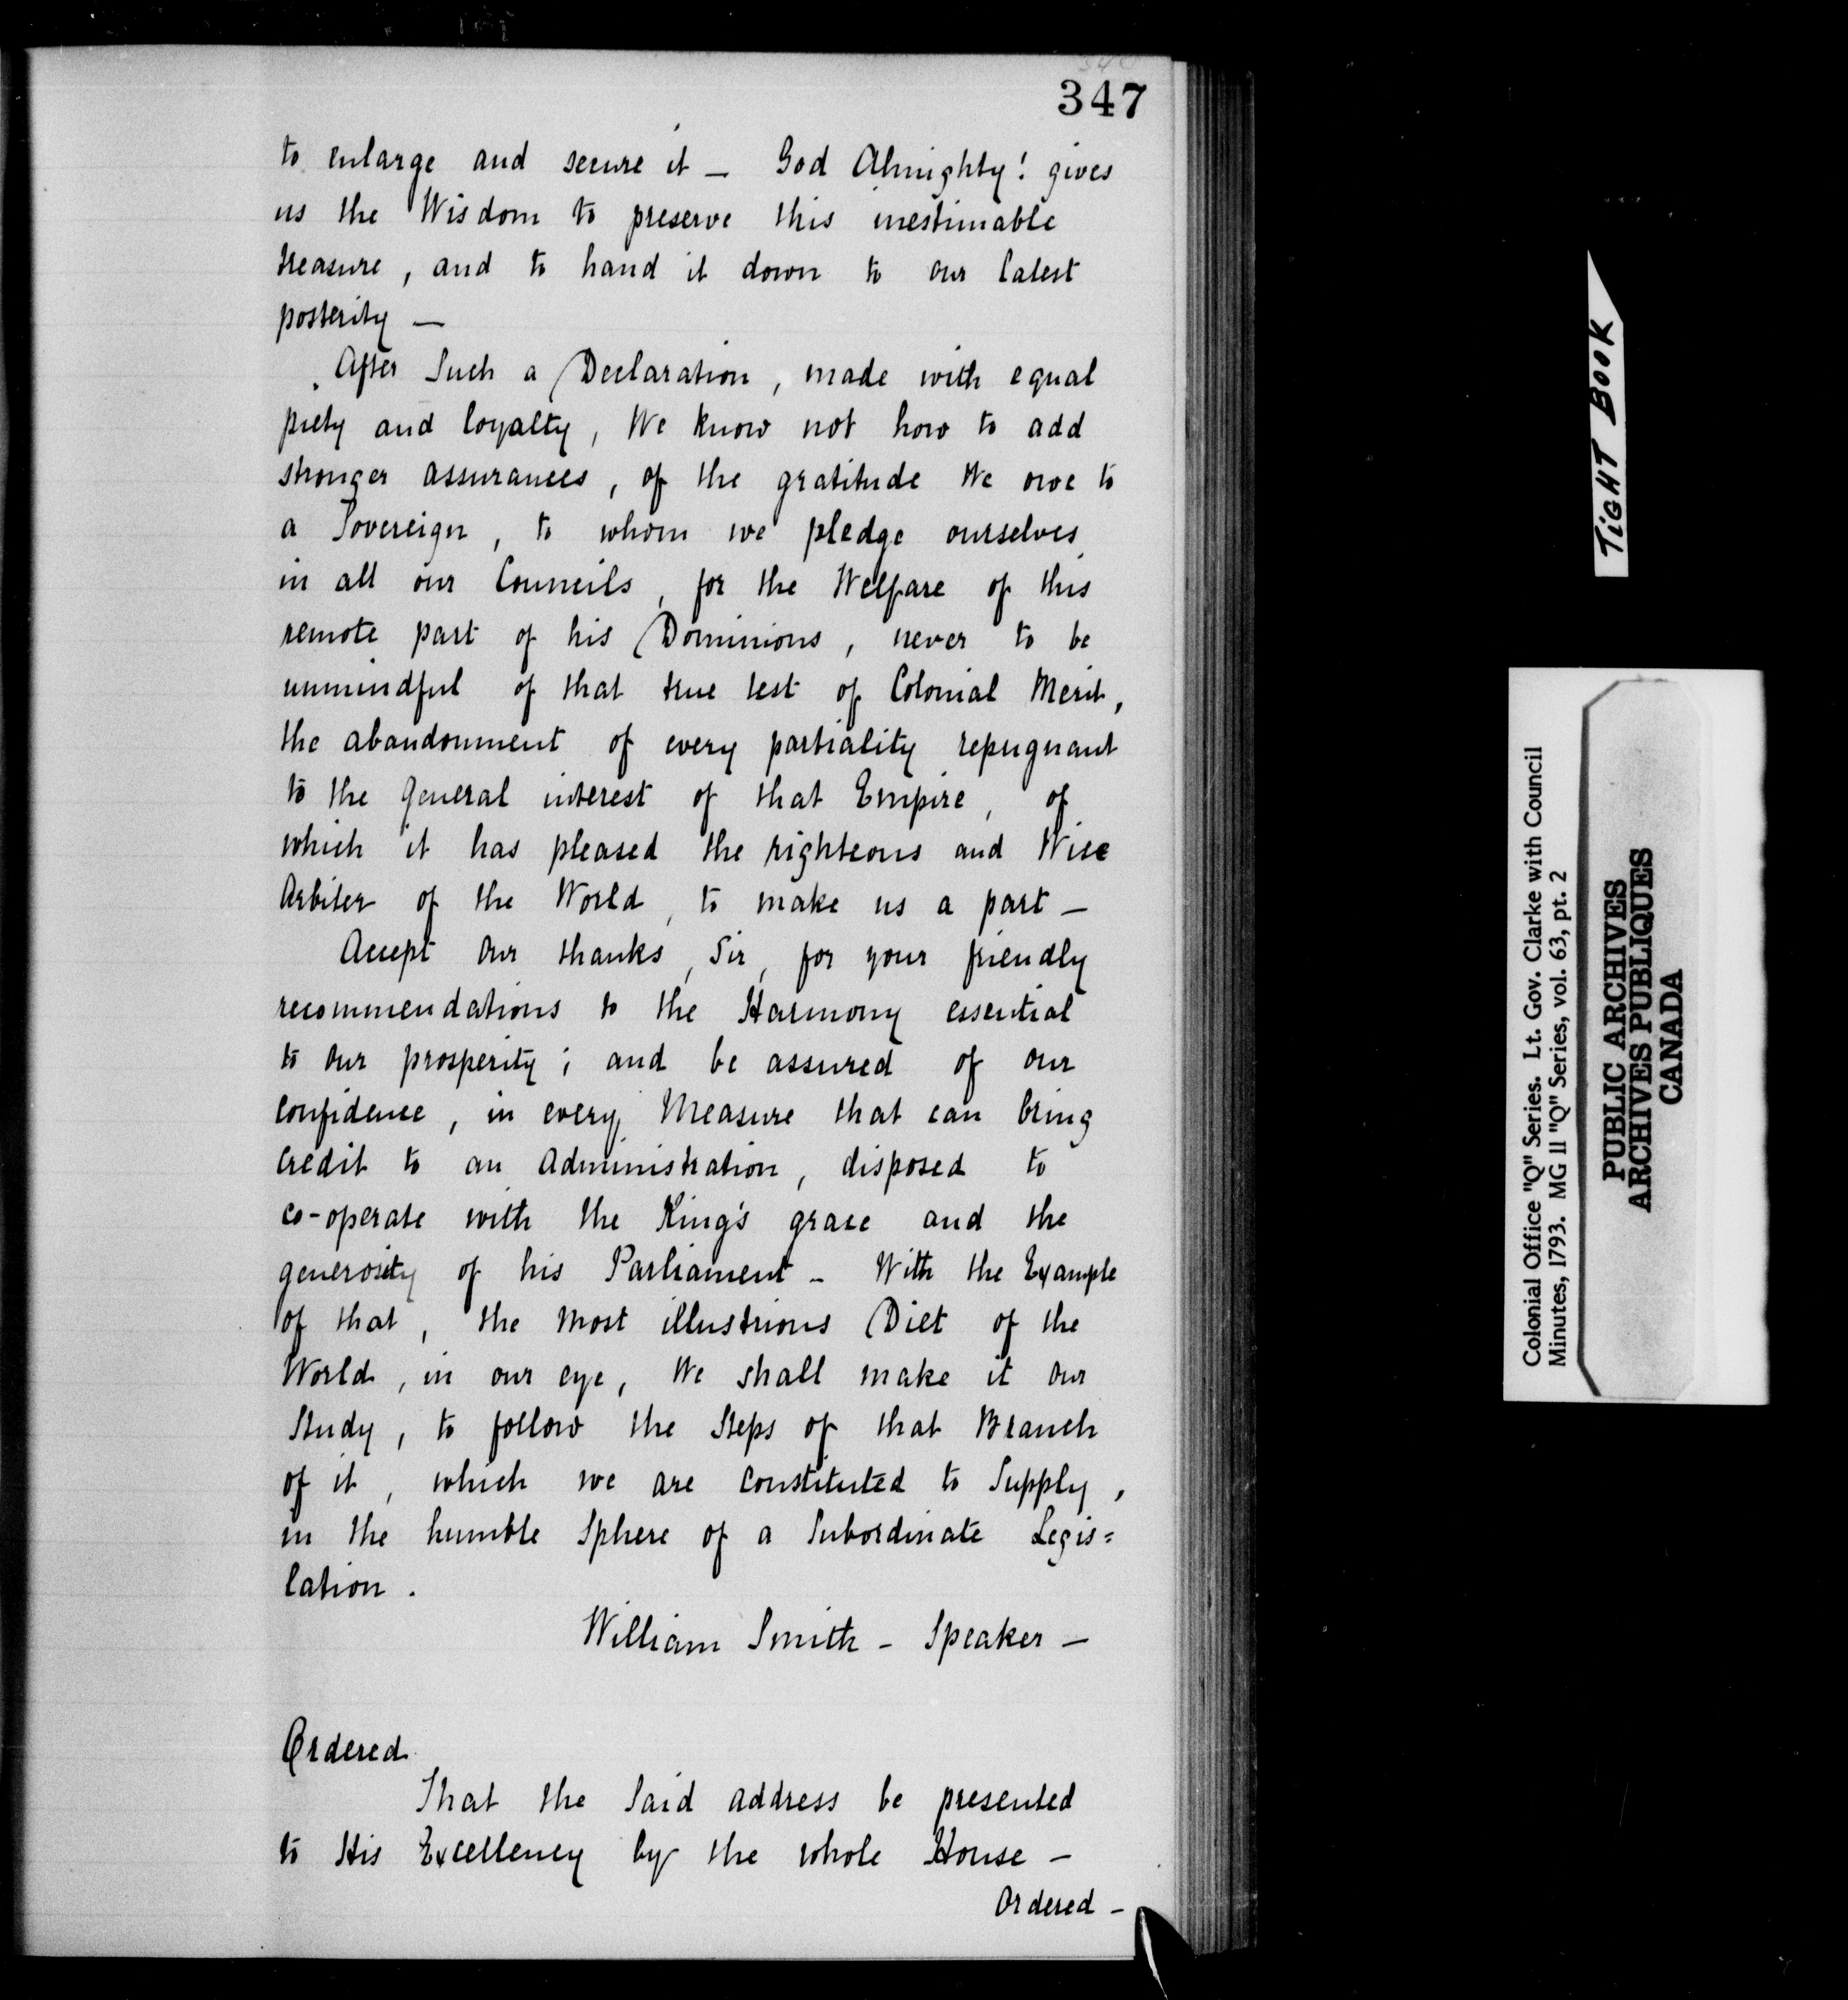 347
to enlarge and secure it — God Almighty! gives
us the Wisdom to preserve this inestimable
treasure, and to hand it down to our latest
posterity —
After Such a Declaration, made with equal
piety and loyalty, We know not how to add
stronger assurances, of the gratitude We owe to
a Sovereign, to whom we pledge ourselves
in all our Councils, for the Welfare of this
remote part of his Dominions, never to be
unmindful of that true test of Colonial Merit,
the abandonment of every partiality repugnant
to the General interest of that Empire, of
which it has pleased the righteous and Wise
Arbiter of the World, to make us a part —
Accept our thanks, Sir, for your friendly
recommendations to the Harmony essential
to our prosperity; and be assured of our
confidence, in every Measure that can bring
credit to an Administration, disposed to
co-operate with the King's grace and the
generosity of his Parliament — With the Example
of that, the most illustrious Diet of the
World, in our eye, We shall make it our
Study, to follow the Steps of that Branch
of it, which we are constituted to Supply,
in the humble Sphere of a Subordinate Legis=
lation.
William Smith — Speaker —
Ordered
That the Said address be presented
to His Excellency by the whole House —
Ordered —
TIGHT BOOK
Colonial Office "Q" Series. Lt. Gov. Clarke with Council
Minutes, 1793. MG 11 "Q" Series, vol. 63, pt. 2
PUBLIC ARCHIVES
ARCHIVES PUBLIQUES
CANADA